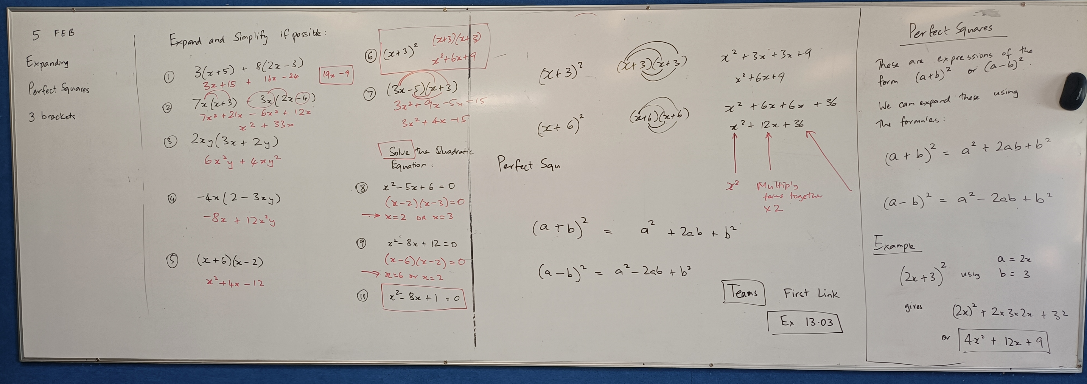 5 FEB
Expanding
Perfect Squares
3 brackets
Expand and Simplify if possible:
① 3(x+5) + 8(2x-3)
3x+15 + 16x-24
19x-9
② 7x(x+3) - 3x(2x-4)
7x² + 21x - 6x² + 12x
x² + 33x
③ 2xy(3x + 2y)
6x²y + 4xy²
④ -4x(2 - 3xy)
-8x + 12x²y
⑤ (x+6)(x-2)
x²+4x-12
⑥ (x+3)²
(x+3)(x+3)
x²+6x+9
⑦ (3x-5)(x+3)
3x²+9x-5x-15
3x²+4x-15
Solve the Quadratic
Equation:
⑧ x²-5x+6=0
(x-2)(x-3)=0
→ x=2 or x=3
⑨ x²-8x+12=0
(x-6)(x-2)=0
→ x=6 or x=2
⑩ x²-8x+1=0
(x+3)²
(x+3)(x+3)
x²+3x+3x+9
x²+6x+9
(x+6)²
(x+6)(x+6)
x² + 6x + 6x + 36
x² + 12x + 36
x²
Multiply
terms together
×2
Perfect Squ
(a+b)² = a² + 2ab + b²
(a-b)² = a²-2ab+b²
Teams First Link
Ex 13.03
Perfect Squares
These are expressions of the
form (a+b)² or (a-b)².
We can expand these using
the formulas:
(a+b)² = a²+2ab+b²
(a-b)² = a²-2ab+b²
Example
(2x+3)² using a=2x
b=3
gives (2x)² + 2×3×2x + 3²
or 4x²+12x+9